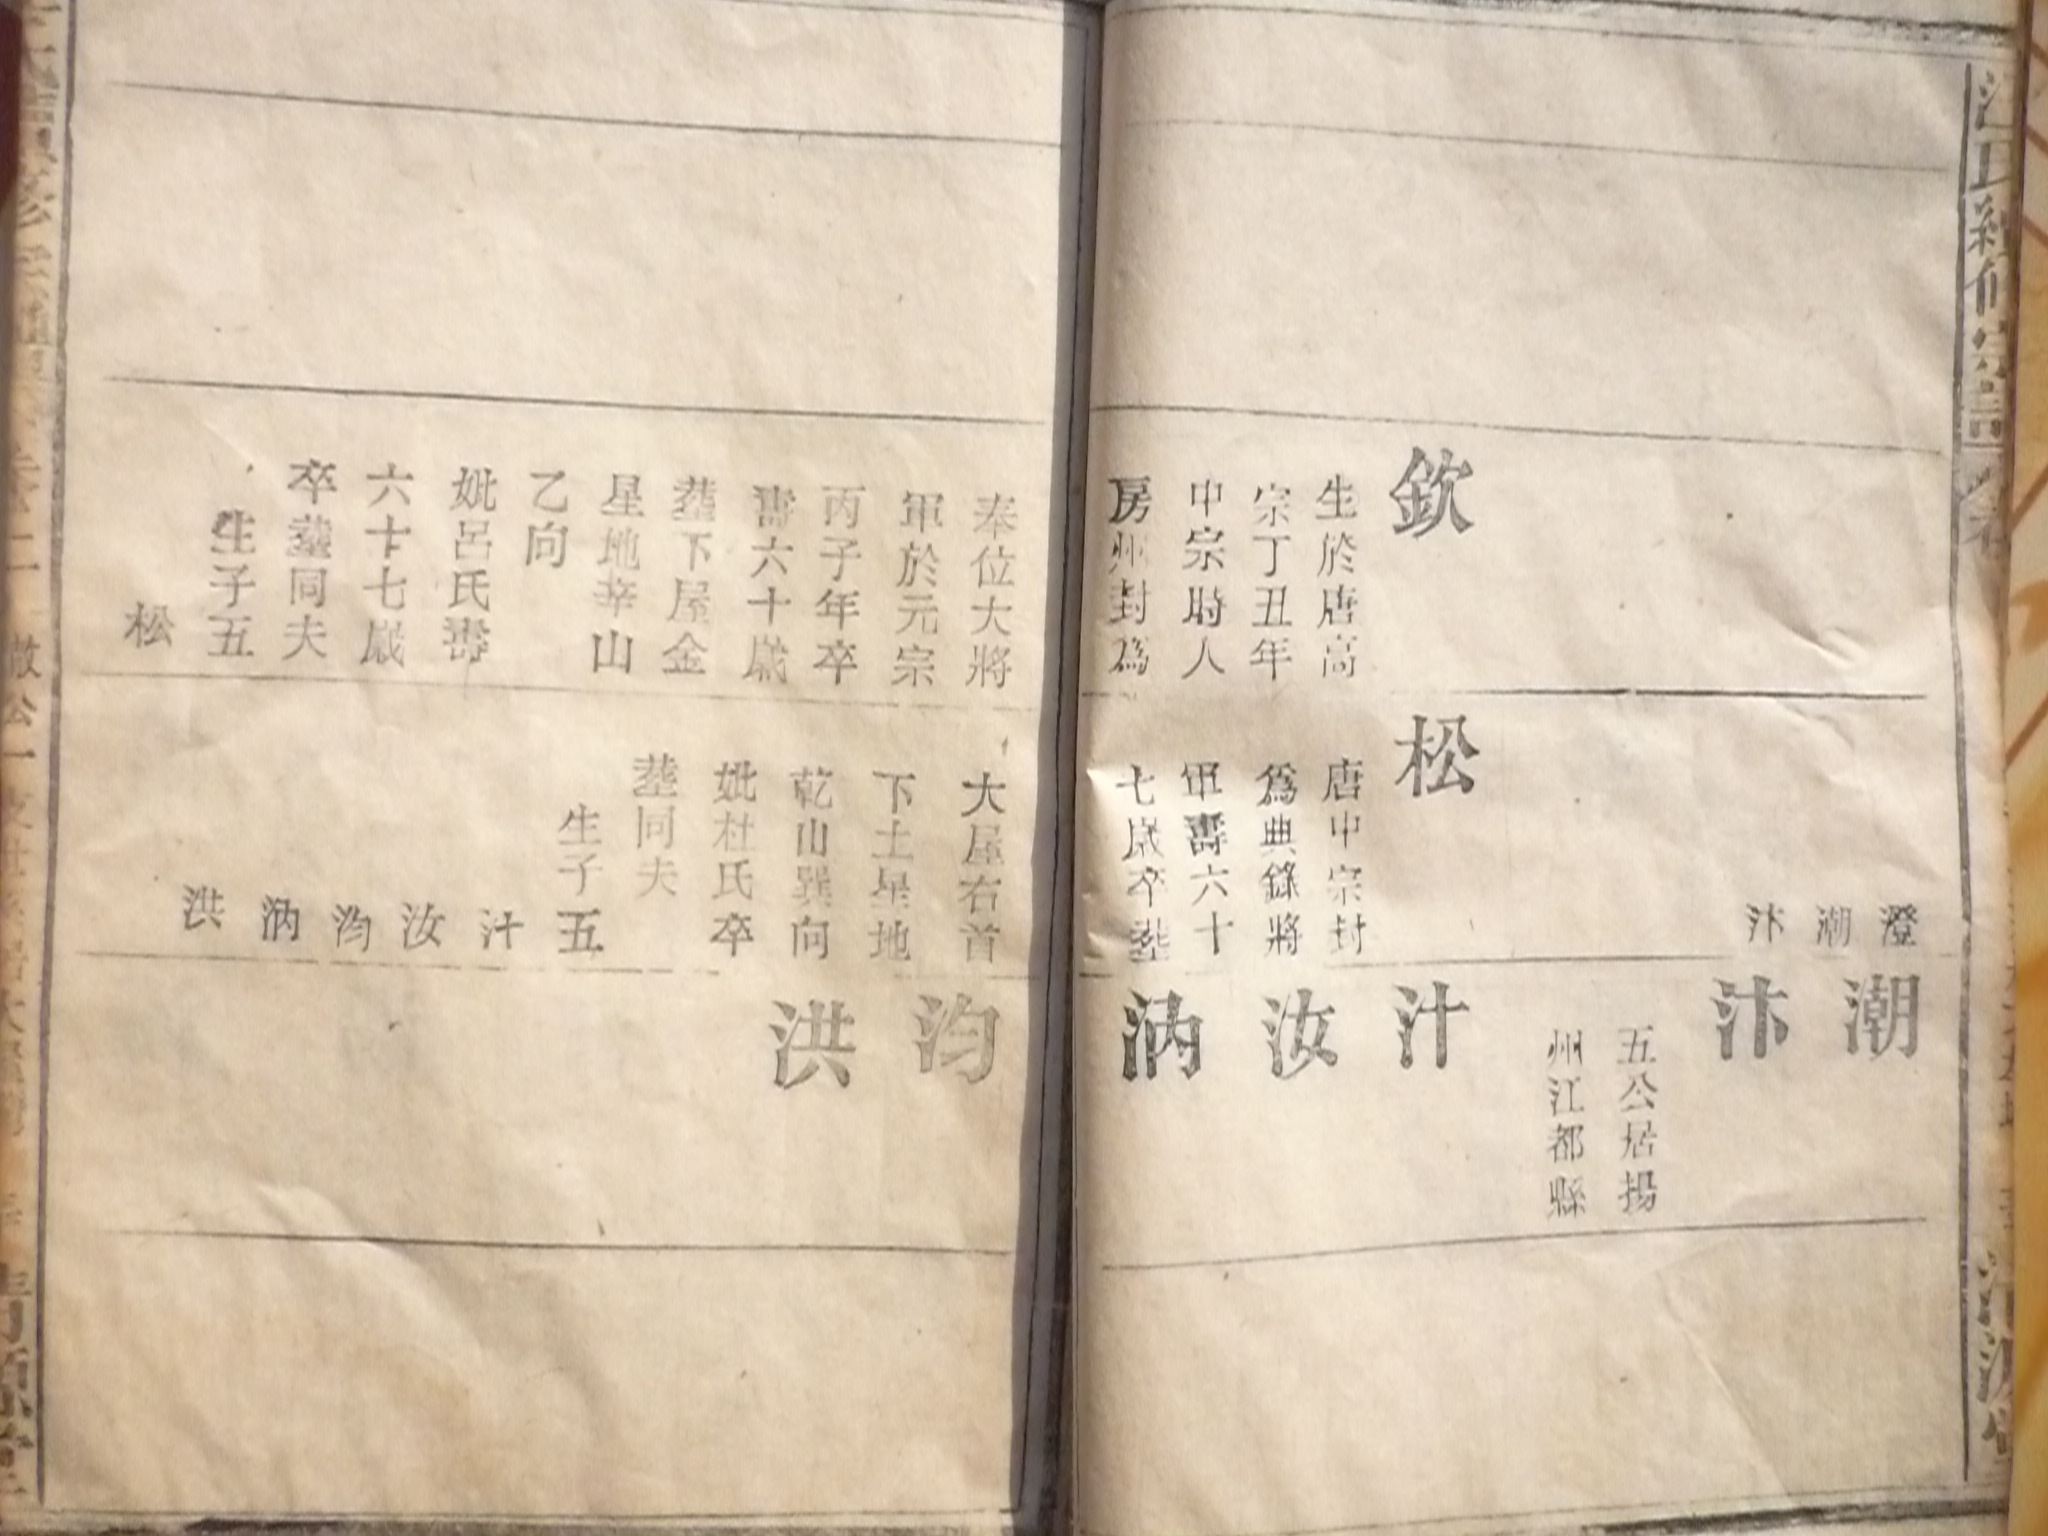 欽
生於唐高
宗丁丑年
中宗時人
房州封為
奉位大將
軍於元宗
丙子年卒
壽六十歲
塟下屋金
星地辛山
乙向
妣呂氏壽
六十七歲
卒塟同夫
生子五
松
澄
潮
汴
松
唐中宗封
為典錄將
軍壽六十
七歲卒塟
大屋右首
下土星地
乾山巽向
妣杜氏卒
塟同夫
生子五
汁
汝
汮
汭
洪
潮
汴
五公居揚
州江都縣
汁
汝
汭
汮
洪